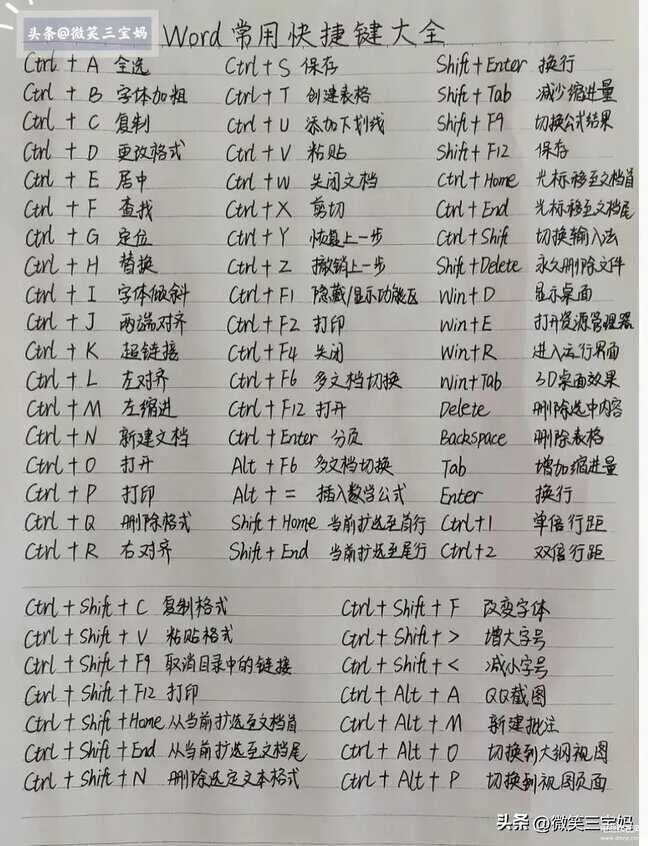 头条@微笑三宝妈
Word常用快捷键大全
Ctrl + A 全选 Ctrl + S 保存 Shift + Enter 换行
Ctrl + B 字体加粗 Ctrl + T 创建表格 Shift + Tab 减少缩进量
Ctrl + C 复制 Ctrl + U 添加下划线 Shift + F9 切换公式结果
Ctrl + D 更改格式 Ctrl + V 粘贴 Shift + F12 保存
Ctrl + E 居中 Ctrl + W 关闭文档 Ctrl + Home 光标移至文档首
Ctrl + F 查找 Ctrl + X 剪切 Ctrl + End 光标移至文档尾
Ctrl + G 定位 Ctrl + Y 恢复上一步 Ctrl + Shift 切换输入法
Ctrl + H 替换 Ctrl + Z 撤销上一步 Shift + Delete 永久删除文件
Ctrl + I 字体倾斜 Ctrl + F1 隐藏/显示功能区 Win + D 显示桌面
Ctrl + J 两端对齐 Ctrl + F2 打印 Win + E 打开资源管理器
Ctrl + K 超链接 Ctrl + F4 关闭 Win + R 进入运行界面
Ctrl + L 左对齐 Ctrl + F6 多文档切换 Win + Tab 3D桌面效果
Ctrl + M 左缩进 Ctrl + F12 打开 Delete 删除选中内容
Ctrl + N 新建文档 Ctrl + Enter 分页 Backspace 删除表格
Ctrl + O 打开 Alt + F6 多文档切换 Tab 增加缩进量
Ctrl + P 打印 Alt + = 插入数学公式 Enter 换行
Ctrl + Q 删除格式 Shift + Home 当前扩选至首行 Ctrl + 1 单倍行距
Ctrl + R 右对齐 Shift + End 当前扩选至尾行 Ctrl + 2 双倍行距
Ctrl + Shift + C 复制格式 Ctrl + Shift + F 改变字体
Ctrl + Shift + V 粘贴格式 Ctrl + Shift + > 增大字号
Ctrl + Shift + F9 取消目录中的链接 Ctrl + Shift + < 减小字号
Ctrl + Shift + F12 打印 Ctrl + Alt + A QQ截图
Ctrl + Shift + Home 从当前扩选至文档首 Ctrl + Alt + M 新建批注
Ctrl + Shift + End 从当前扩选至文档尾 Ctrl + Alt + O 切换到大纲视图
Ctrl + Shift + N 删除选定文本格式 Ctrl + Alt + P 切换到视图页面
头条 @微笑三宝妈